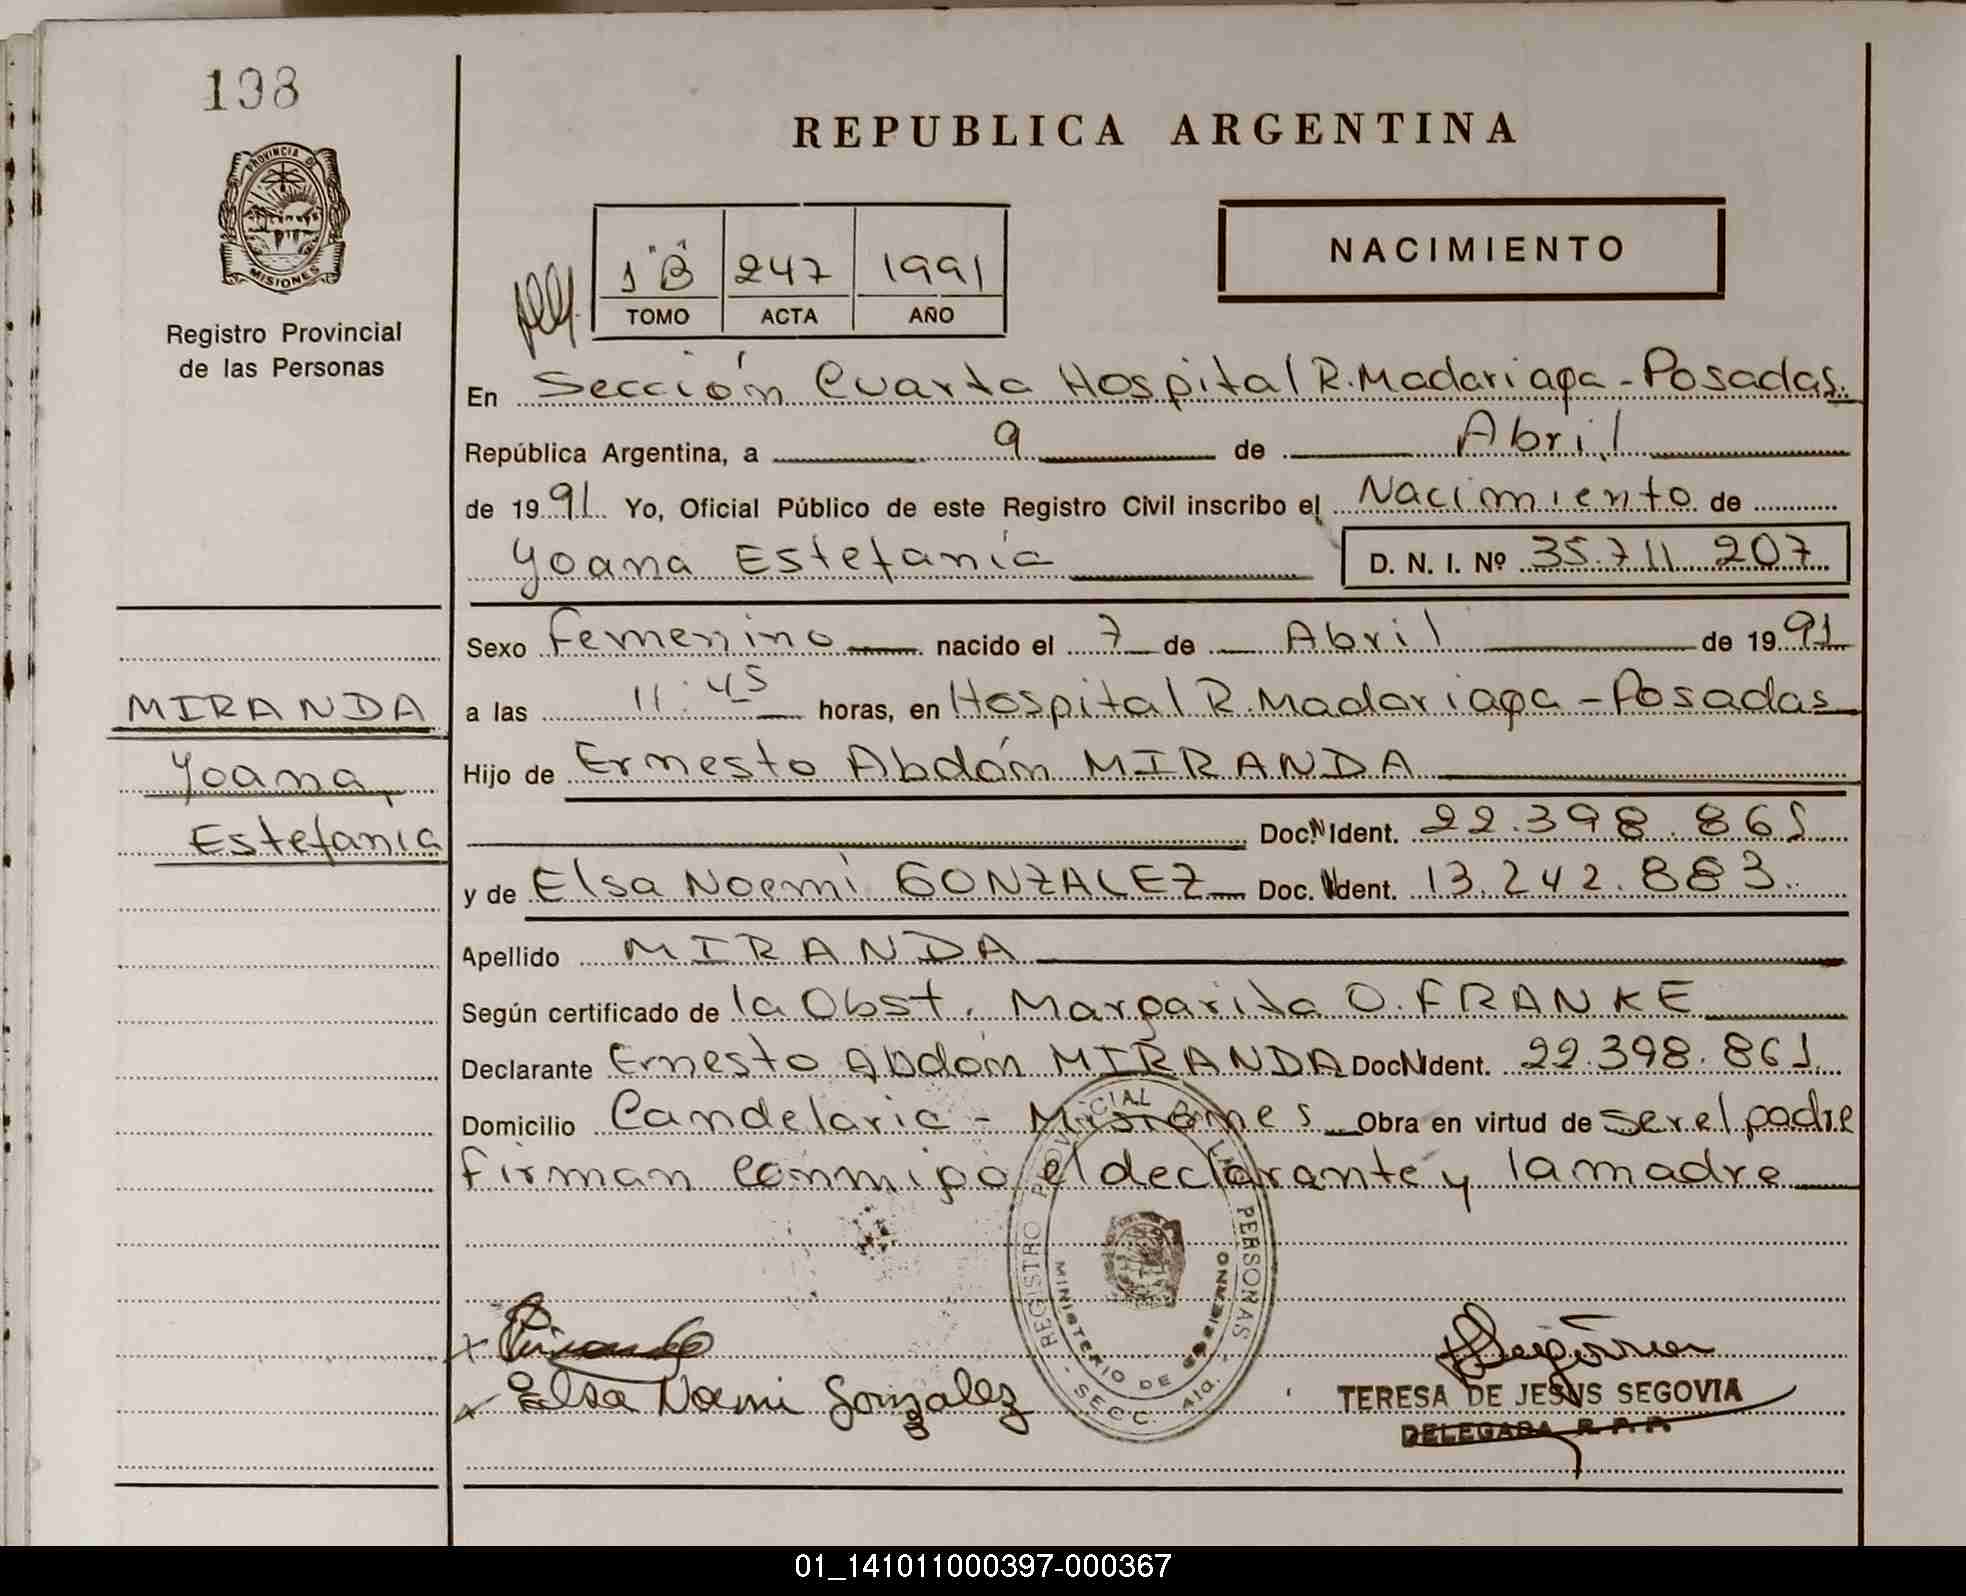 198
PROVINCIA DE
MISIONES
Registro Provincial
de las Personas
REPUBLICA ARGENTINA
NACIMIENTO
1 "B" 247 1991
TOMO ACTA AÑO
En Sección Cuarta Hospital R. Madariaga - Posadas.
República Argentina, a 9 de Abril
de 1991 Yo, Oficial Público de este Registro Civil inscribo el Nacimiento de
Yoana Estefania D. N. I. Nº 35.711.207
Sexo femenino nacido el 7 de Abril de 1991
a las 11:45 horas, en Hospital R. Madariaga - Posadas
MIRANDA
Yoana
Estefania
Hijo de Ernesto Abdón MIRANDA
Doc. N Ident. 22.398.861
y de Elsa Noemi GONZALEZ Doc. N Ident. 13.242.883.
Apellido MIRANDA
Según certificado de la Obst. Margarita O. FRANKE
Declarante Ernesto Abdón MIRANDA Doc N Ident. 22.398.861
Domicilio Candelaria - Misiones Obra en virtud de ser el padre
firman conmigo el declarante y la madre
REGISTRO PROVINCIAL DE LAS PERSONAS
MINISTERIO DE GOBIERNO
SECC. 4ta.
Elsa Noemi Gonzalez
TERESA DE JESUS SEGOVIA
DELEGADA R. P. P.
01_141011000397-000367